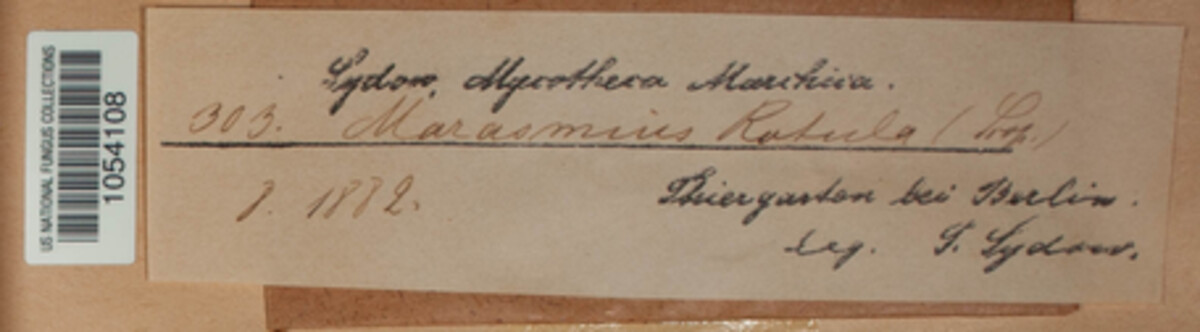 US NATIONAL FUNGUS COLLECTIONS
1054108
Sydow, Mycotheca Marchica.
303. Marasmius Rotula (Scop.)
8. 1882.
Thiergarten bei Berlin.
Leg. P. Sydow.